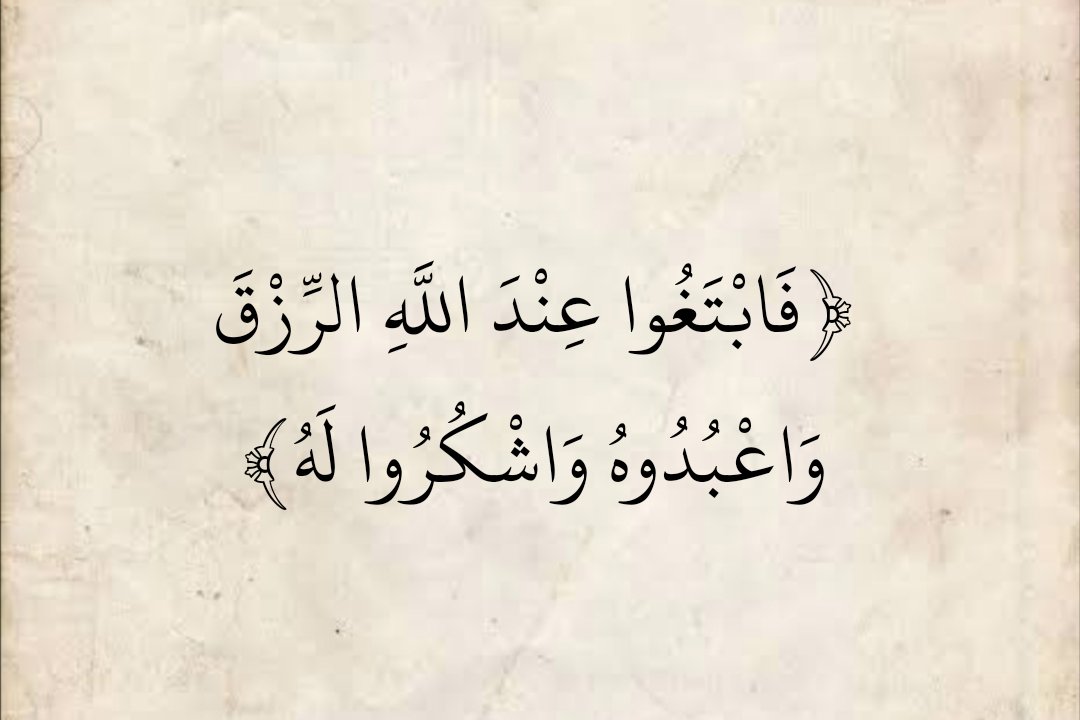 ﴿فَابْتَغُوا عِنْدَ اللَّهِ الرِّزْقَ
وَاعْبُدُوهُ وَاشْكُرُوا لَهُ﴾